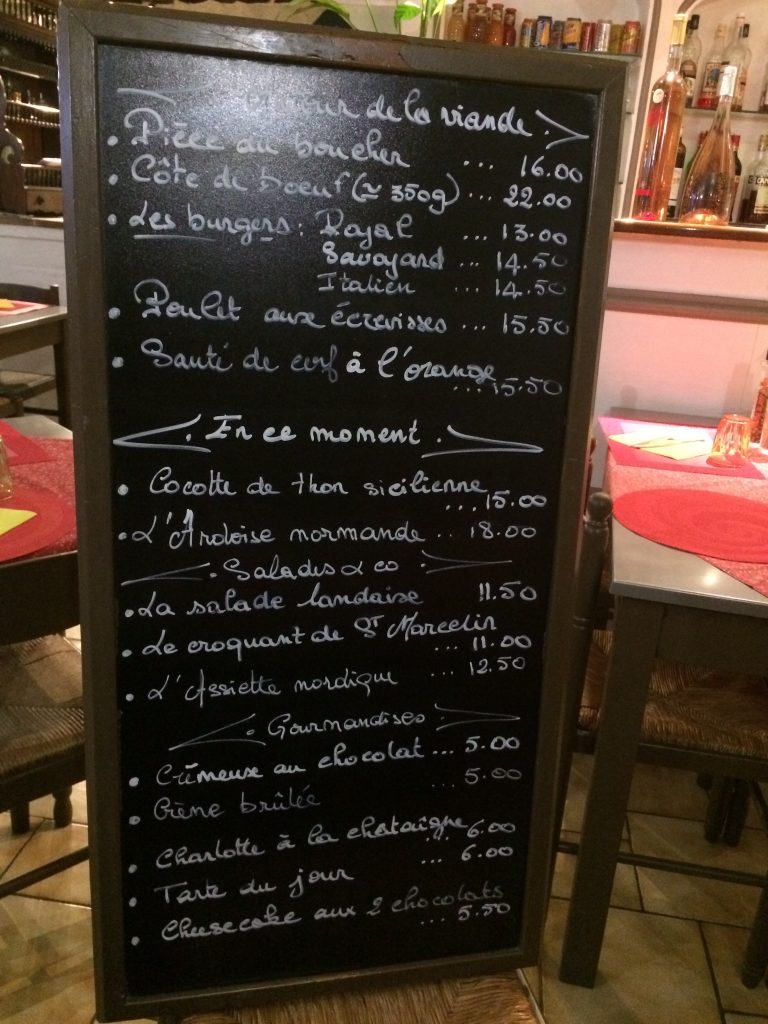 Autour de la viande.
• Pièce du boucher ... 16.00
• Côte de boeuf (≃ 350g) ... 22.00
• Les burgers : Royal ... 13.00
Savoyard ... 14.50
Italien ... 14.50
• Poulet aux écrevisses ... 15.50
• Sauté de cerf à l'orange
... 15.50
. En ce moment .
• Cocotte de thon sicilienne
... 15.00
• L'Ardoise normande ... 18.00
. Salades & co .
• La salade landaise 11.50
• Le croquant de St Marcelin
... 11.00
• L'Assiette nordique ... 12.50
. Gourmandises .
• Crémeux au chocolat ... 5.00
• Crème brûlée ... 5.00
• Charlotte à la chataîgne ... 6.00
• Tarte du jour ... 6.00
• Cheesecake aux 2 chocolats
... 5.50